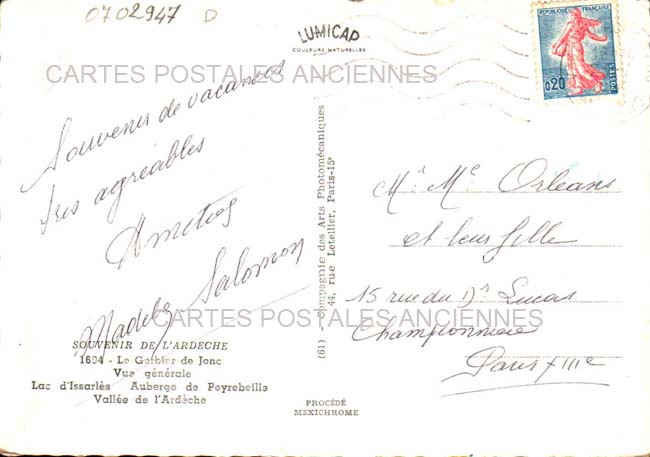 0702947 D
LUMICAP
COULEURS NATURELLES
REPUBLIQUE FRANÇAISE
0,20
POSTES
CARTES POSTALES ANCIENNES
Souvenir de vacances
très agréables
Amitiés
Madele Salomon
SOUVENIR DE L'ARDECHE
1694 - Le Gerbier de Jonc
Vue générale
Lac d'Issarlès Auberge de Peyrebeille
Vallée de l'Ardèche
(61) - Compagnie des Arts Photomécaniques
44, rue Letellier, Paris-15e
PROCÉDÉ
MEXICHROME
Mr Me Orleans
et leur fille
15 rue du Dr Lucas
Championnière
Paris XIIIe
CARTES POSTALES ANCIENNES